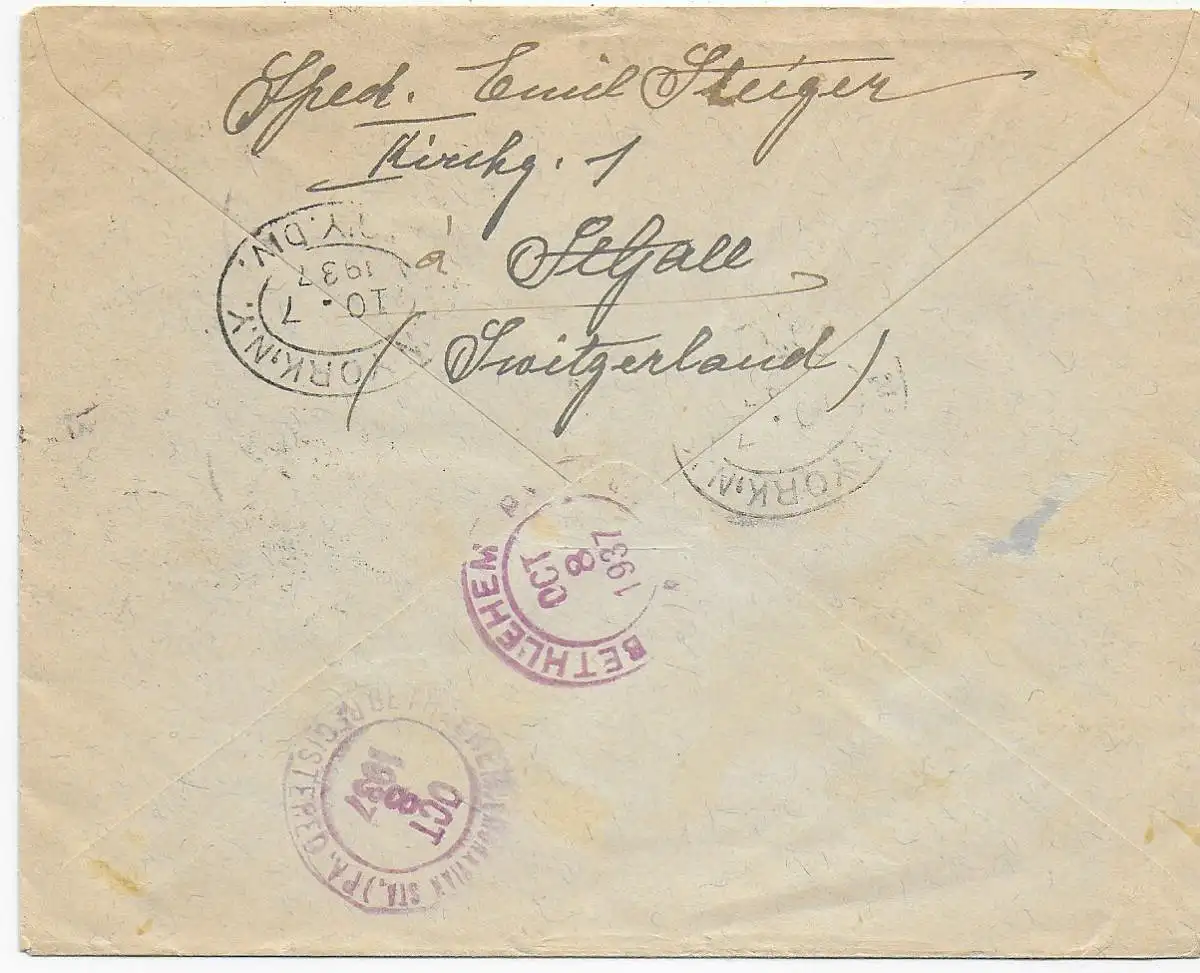 Sped. Emil Steiger
Kirchg. 1
à StGall
(Switzerland)
YORK, N.Y.
Y. DIV.
10 • 7
1937
YORK, N.
7
BETHLEHEM
OCT
8
1937
STA.) PA. REGISTERED
OCT
8
1937